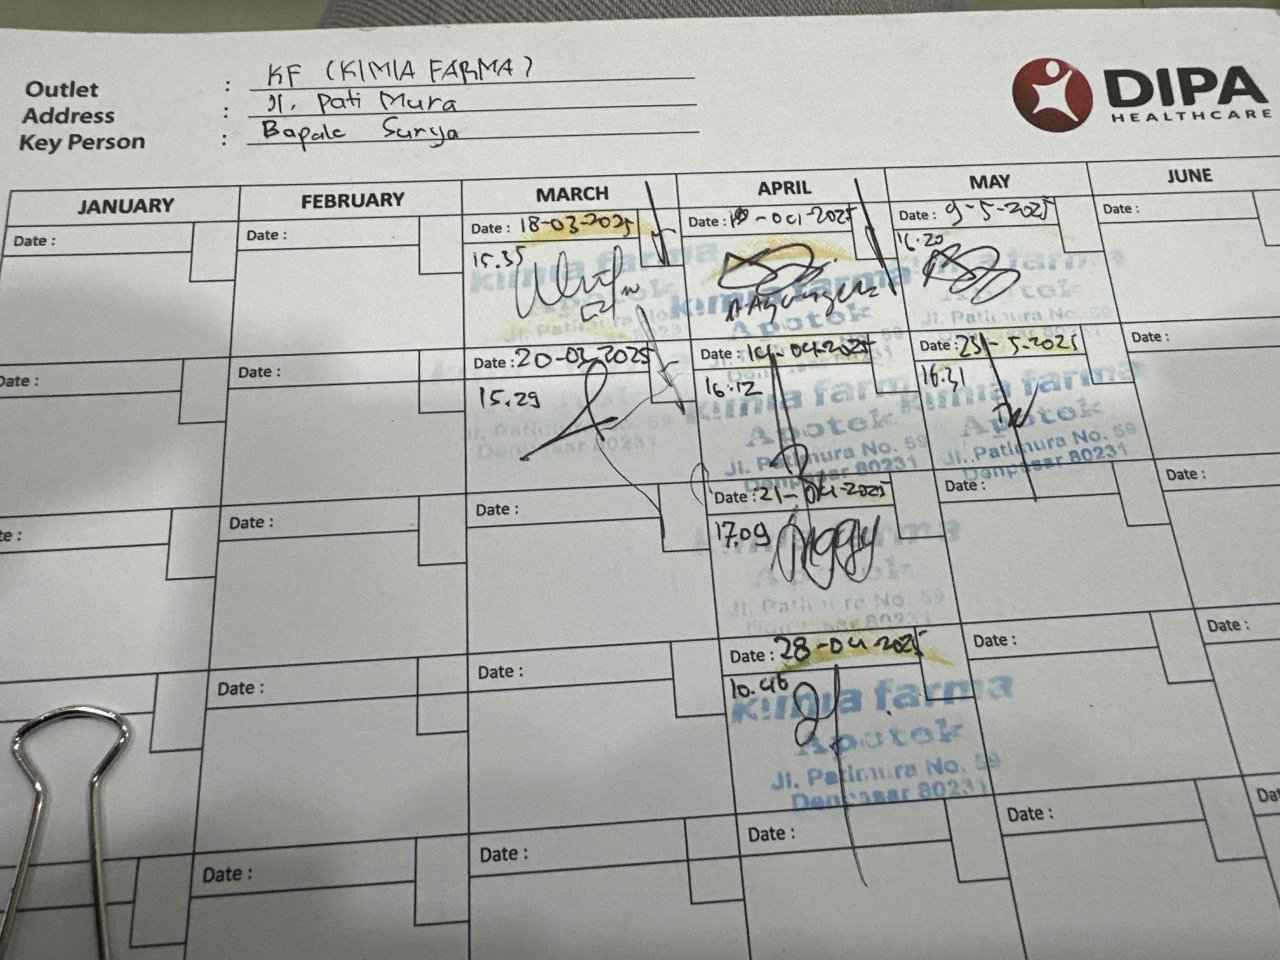 Outlet : KF (KIMIA FARMA)
Address : Jl. Pati Mura
Key Person : Bapak Surya
DIPA
HEALTHCARE
JANUARY FEBRUARY MARCH APRIL MAY JUNE
Date : Date : Date : 18-03-2025 Date : -04-2025 Date : 9-5-2025 Date :
15.35 16.20
kimia farma kimia farma
Apotek Apotek Apotek
Jl. Patimura No. Jl. Patimura No. 59
Date : Date : Date : 20-03-2025 Date : 14-04-2025 Date : 5.2025 Date :
15.29 16.12 16.31
kimia farma kimia farma
Apotek Apotek
Jl. Patimura No. 59 Jl. Patimura No. 59
Denpasar 80231 Denpasar 80231 Denpasar 80231
te : Date : Date : Date : 21-04-2025 Date : Date :
17.09
Apotek
Jl. Patimura No. 59
Date : Date : Date : 28-04-2025 Date : Date :
10.46
kimia farma
Apotek
Jl. Patimura No. 59
Denpasar 80231
Date : Date : Date : Date : Dat